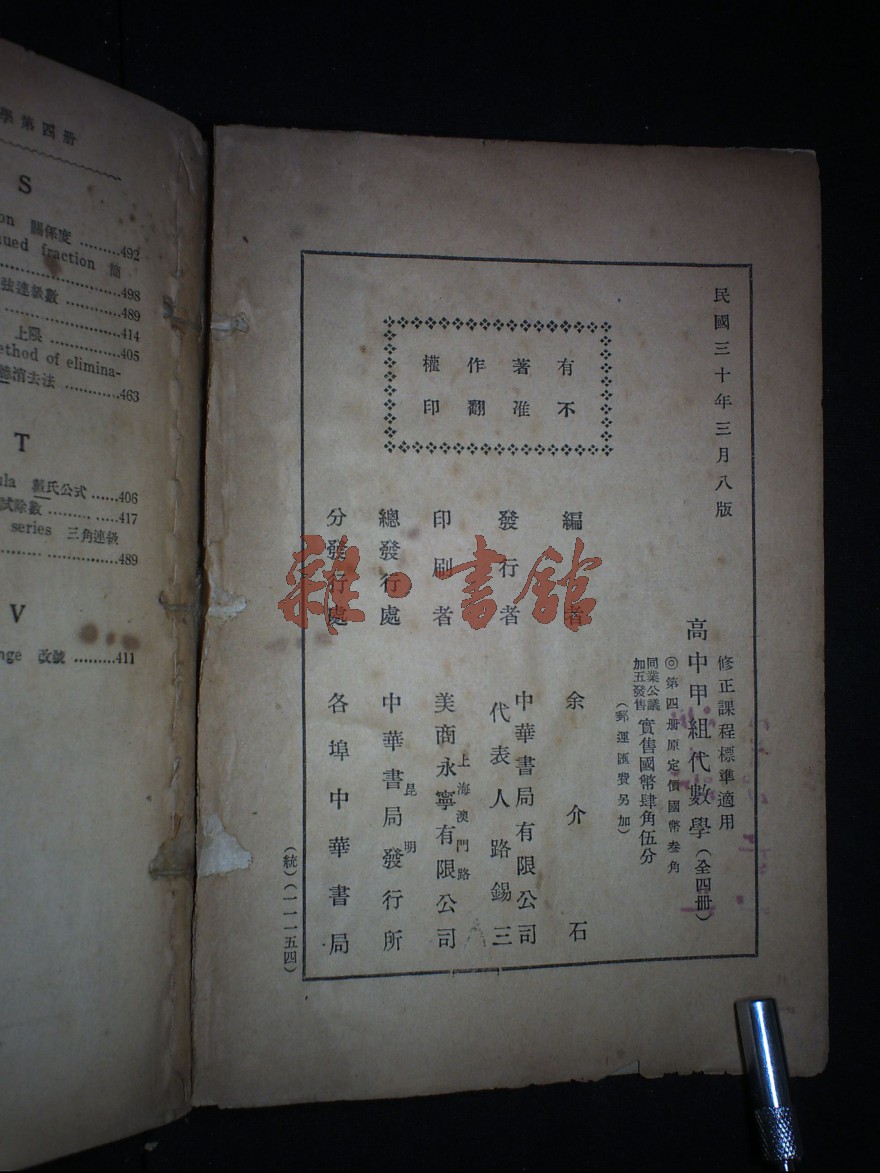 學第四册
S
on 關係度 ………492
nued fraction 簡
………498
強連級數 ………489
………414
上限 ………405
ethod of elimina-
………463
T
ula 戴氏公式 ……406
試除數 ………417
series 三角連級
………489
V
nge 改號 ………411
民國三十年三月八版
修正課程標準適用
高中甲組代數學(全四册)
◎第四册原定價國幣叁角
同業公議
加五發售
實售國幣肆角伍分
(郵運匯費另加)
有著作權
不准翻印
編者 余介石
發行者 中華書局有限公司
代表人路錫三
印刷者 上海澳門路
美商永寧有限公司
總發行處 昆明
中華書局發行所
分發行處 各埠中華書局
(統)(一一一五四)
雜·書館